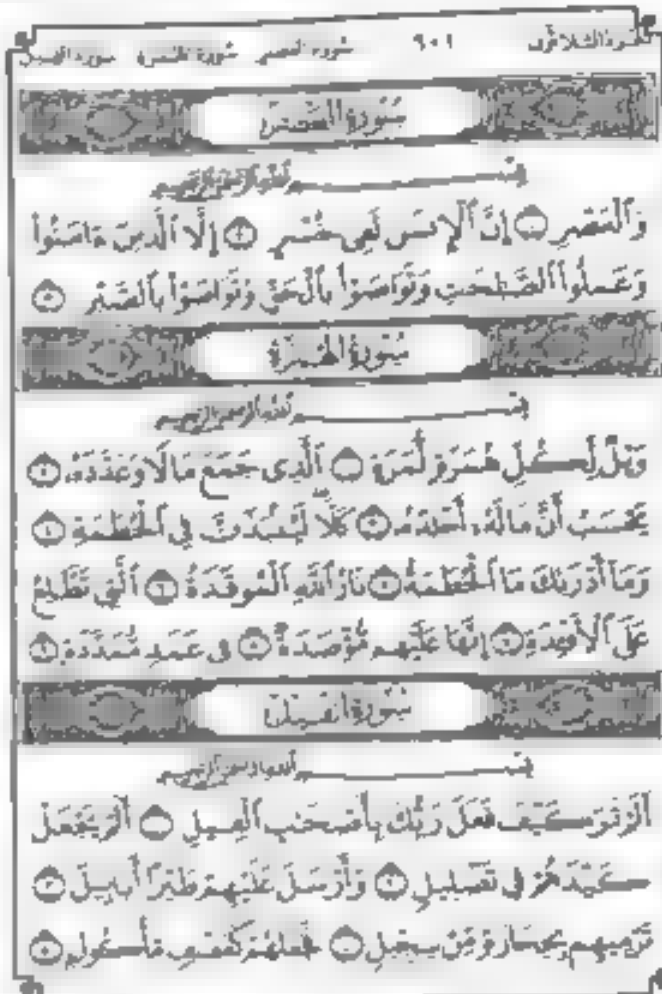 الجزء الثلاثون ٦٠١ سورة العصر سورة الهمزة سورة الفيل
سُورَةُ العَصْرِ
بِسْمِ ٱللَّهِ ٱلرَّحْمَٰنِ ٱلرَّحِيمِ
وَٱلْعَصْرِ ۝١ إِنَّ ٱلْإِنسَٰنَ لَفِى خُسْرٍ ۝٢ إِلَّا ٱلَّذِينَ ءَامَنُوا۟
وَعَمِلُوا۟ ٱلصَّٰلِحَٰتِ وَتَوَاصَوْا۟ بِٱلْحَقِّ وَتَوَاصَوْا۟ بِٱلصَّبْرِ ۝٣
سُورَةُ الهُمَزَةِ
بِسْمِ ٱللَّهِ ٱلرَّحْمَٰنِ ٱلرَّحِيمِ
وَيْلٌ لِّكُلِّ هُمَزَةٍ لُّمَزَةٍ ۝١ ٱلَّذِى جَمَعَ مَالًا وَعَدَّدَهُۥ ۝٢
يَحْسَبُ أَنَّ مَالَهُۥٓ أَخْلَدَهُۥ ۝٣ كَلَّا ۖ لَيُنۢبَذَنَّ فِى ٱلْحُطَمَةِ ۝٤
وَمَآ أَدْرَىٰكَ مَا ٱلْحُطَمَةُ ۝٥ نَارُ ٱللَّهِ ٱلْمُوقَدَةُ ۝٦ ٱلَّتِى تَطَّلِعُ
عَلَى ٱلْأَفْـِٔدَةِ ۝٧ إِنَّهَا عَلَيْهِم مُّؤْصَدَةٌ ۝٨ فِى عَمَدٍ مُّمَدَّدَةٍۭ ۝٩
سُورَةُ الفِيلِ
بِسْمِ ٱللَّهِ ٱلرَّحْمَٰنِ ٱلرَّحِيمِ
أَلَمْ تَرَ كَيْفَ فَعَلَ رَبُّكَ بِأَصْحَٰبِ ٱلْفِيلِ ۝١ أَلَمْ يَجْعَلْ
كَيْدَهُمْ فِى تَضْلِيلٍ ۝٢ وَأَرْسَلَ عَلَيْهِمْ طَيْرًا أَبَابِيلَ ۝٣
تَرْمِيهِم بِحِجَارَةٍ مِّن سِجِّيلٍ ۝٤ فَجَعَلَهُمْ كَعَصْفٍ مَّأْكُولٍۭ ۝٥